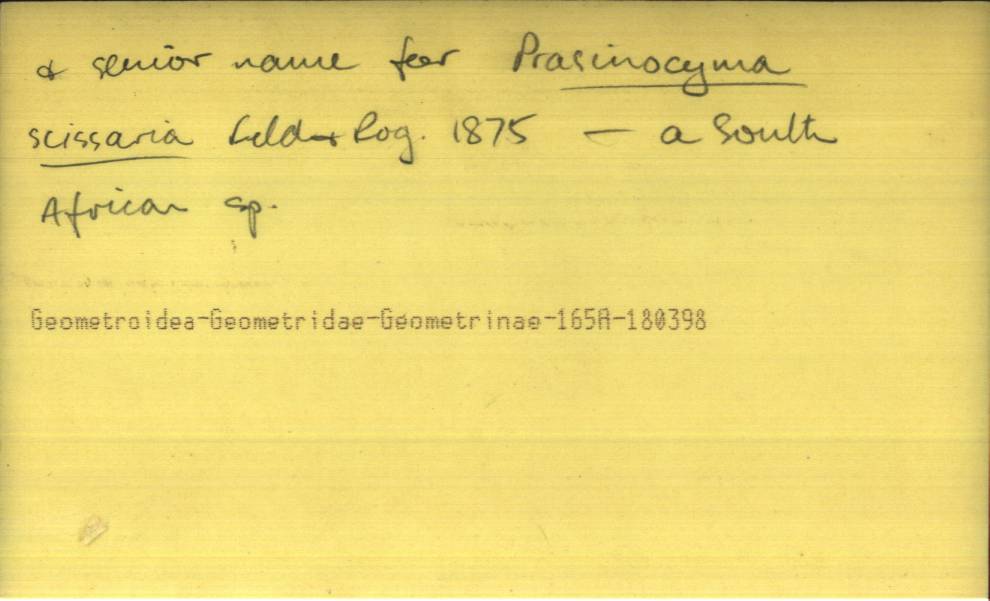 & senior name for Prasinocyma
scissaria Feld & Rog. 1875 — a South
African sp.
Geometroidea-Geometridae-Geometrinae-165A-180398